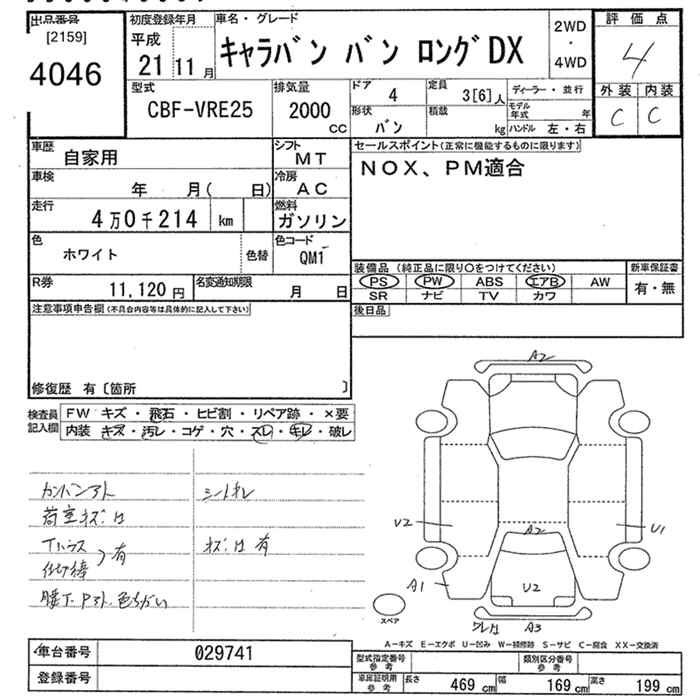 出品番号
[2159]
4046
初度登録年月
平成
21 11 月
車名・グレード
キャラバン バン ロングDX
2WD
・
4WD
評価点
4
外装 内装
C C
型式
CBF-VRE25
排気量
2000
CC
ドア 4
定員 3[6]人
ディーラー・並行
形状 バン
積載 kg
モデル年式 年
ハンドル 左・右
車歴 自家用
シフト MT
セールスポイント(正常に機能するものに限ります)
NOX、PM適合
車検 年 月( 日)
冷房 AC
走行 4万0千214 km
燃料 ガソリン
色 ホワイト 色替
色コード QM1
装備品(純正品に限り○をつけてください)
新車保証書
PS PW ABS エアB AW
有・無
SR ナビ TV カワ
R券 11,120円
名変通知期限 月 日
後日品
注意事項申告欄(不具合内容等は具体的に記入して下さい)
修復歴 有〔箇所 〕
検査員記入欄
FW キズ・飛石・ヒビ割・リペア跡・×要
内装 キズ・汚レ・コゲ・穴・スレ・キレ・破レ
カンバンアト
シートキレ
荷室キズ凹
有
キズ凹有
腰下 Pアト 色ちがい
A2
U2
A2
U1
A1
U2
A3
スペア
A-キズ E-エクボ U-凹み W-補修跡 S-サビ C-腐食 XX-交換済
車台番号 029741
登録番号
型式指定番号参考
類別区分番号参考
車庫証明用参考
長さ 469 cm 幅 169 cm 高さ 199 cm